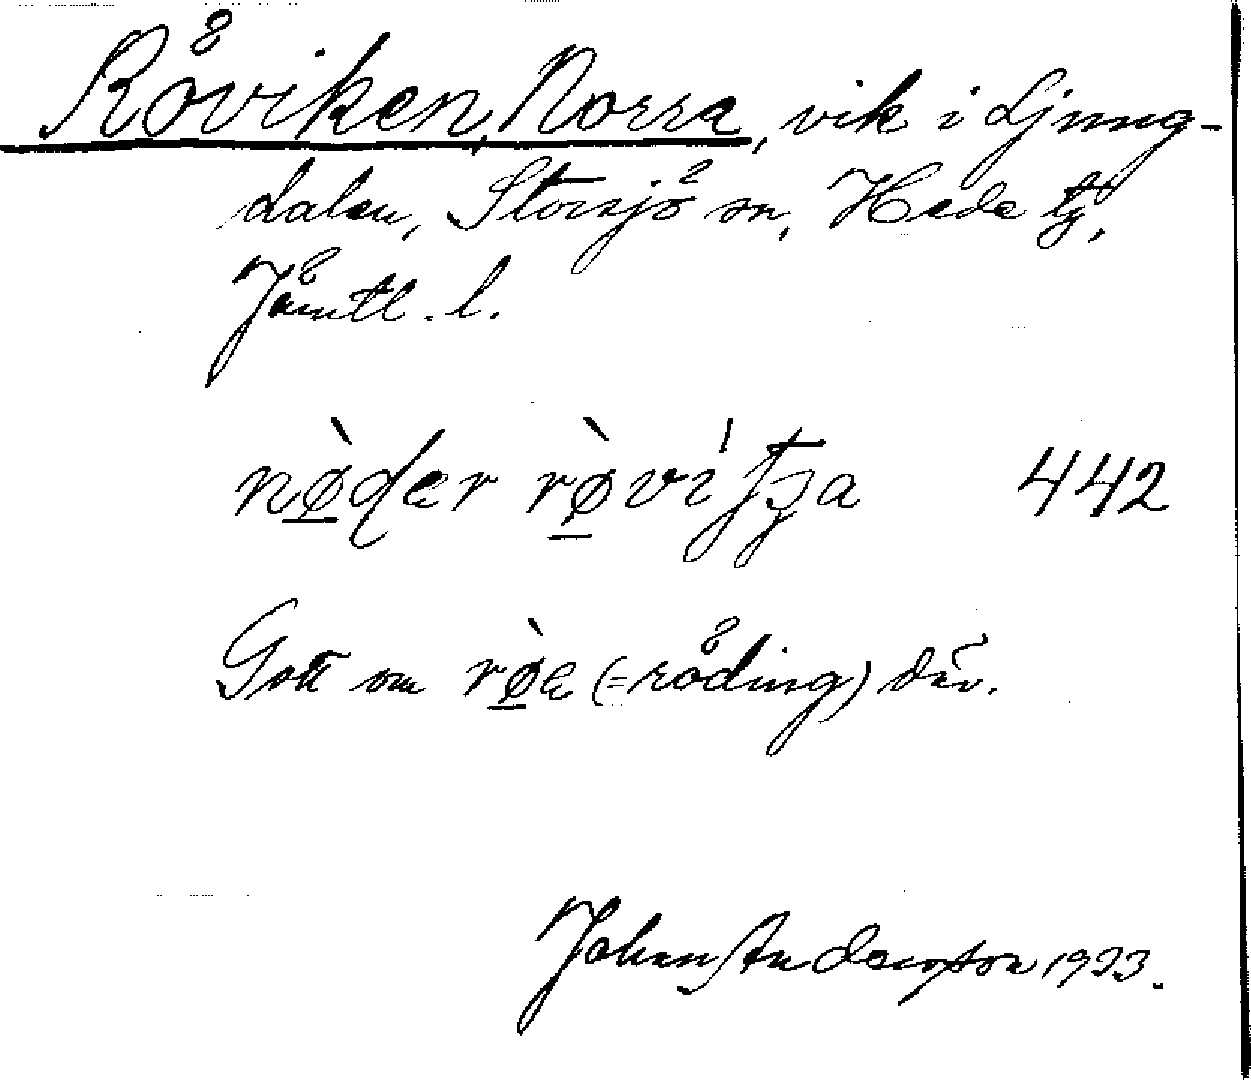 Röviken, Norra, vik i Ljung-
dalen, Storsjö sn, Hede tg,
Jämtl. l.
nø̀ḍer rø̀vi'ʃʒa 442
Gott om rø̀e (= röding) där.
Johan Andersson 1933.